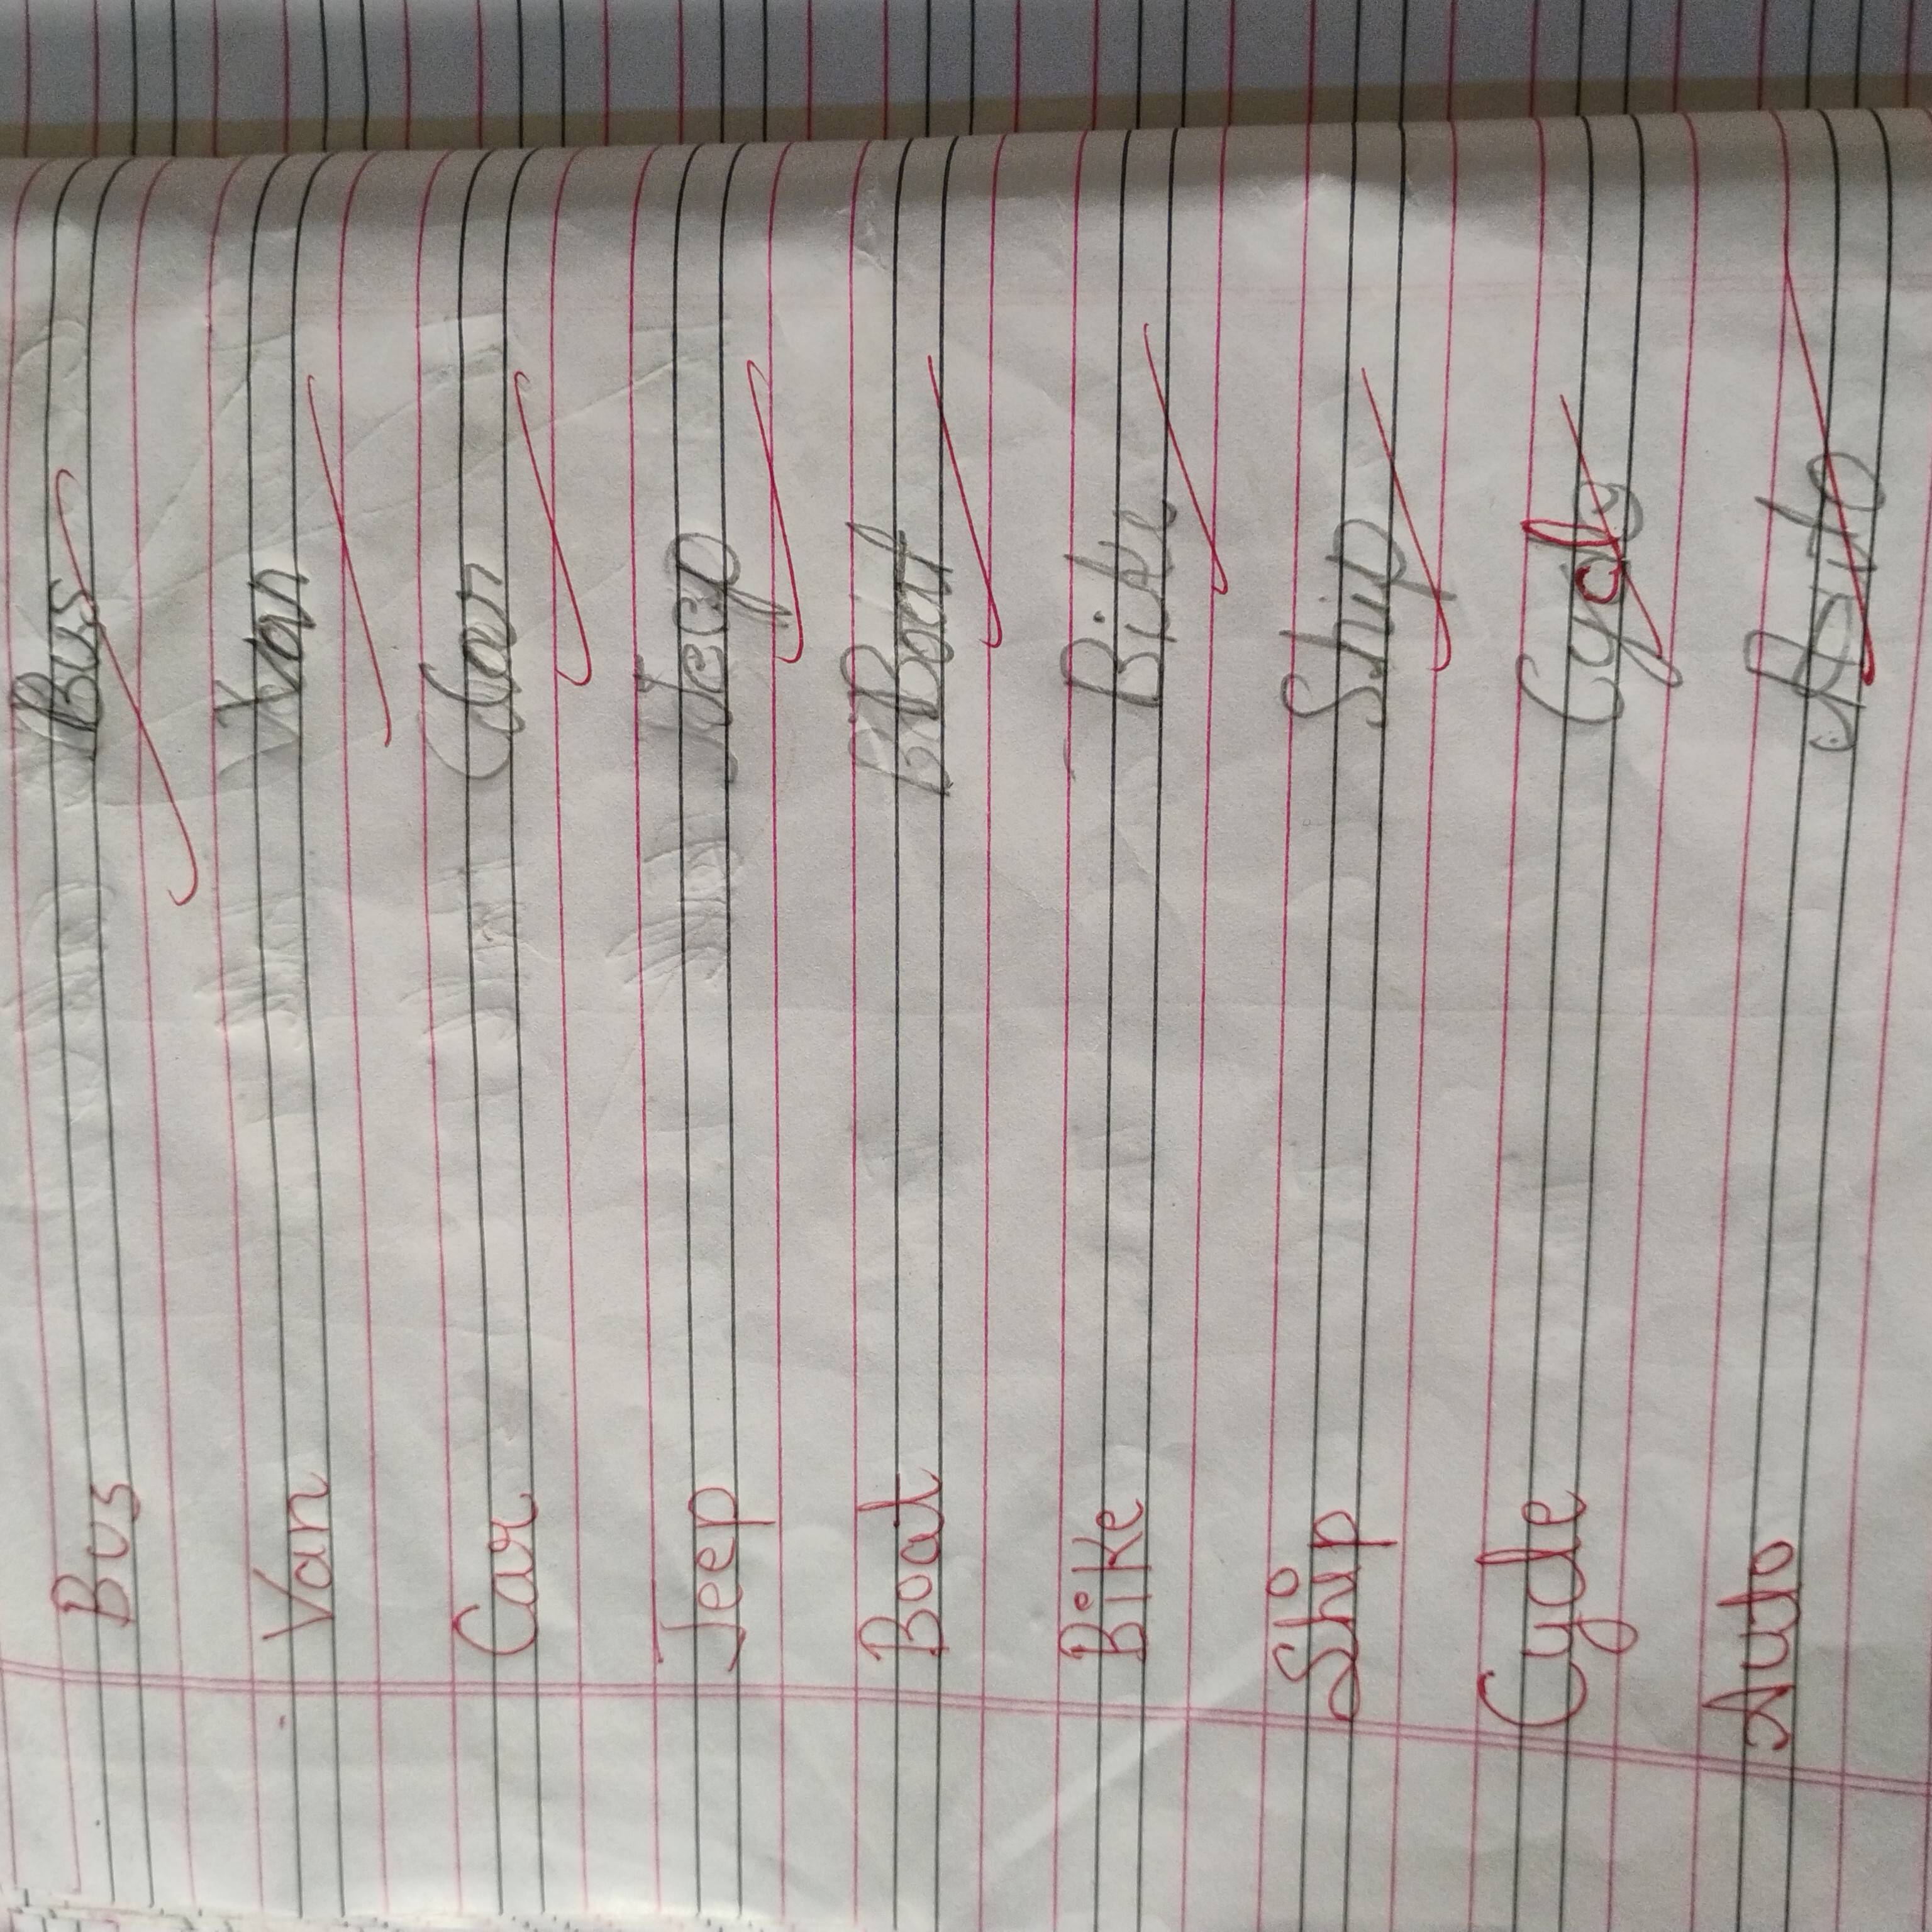 Bus Bus
Van Van
Car Car
Jeep Jeep
Boat Boat
Bike Bike
Ship Ship
Cycle Cycle
Auto Auto